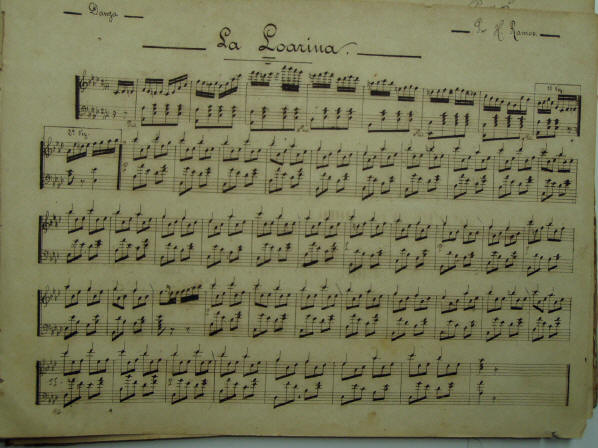 Danza
La Loarina.
H. Ramos.
1ª Vez
2ª Vez